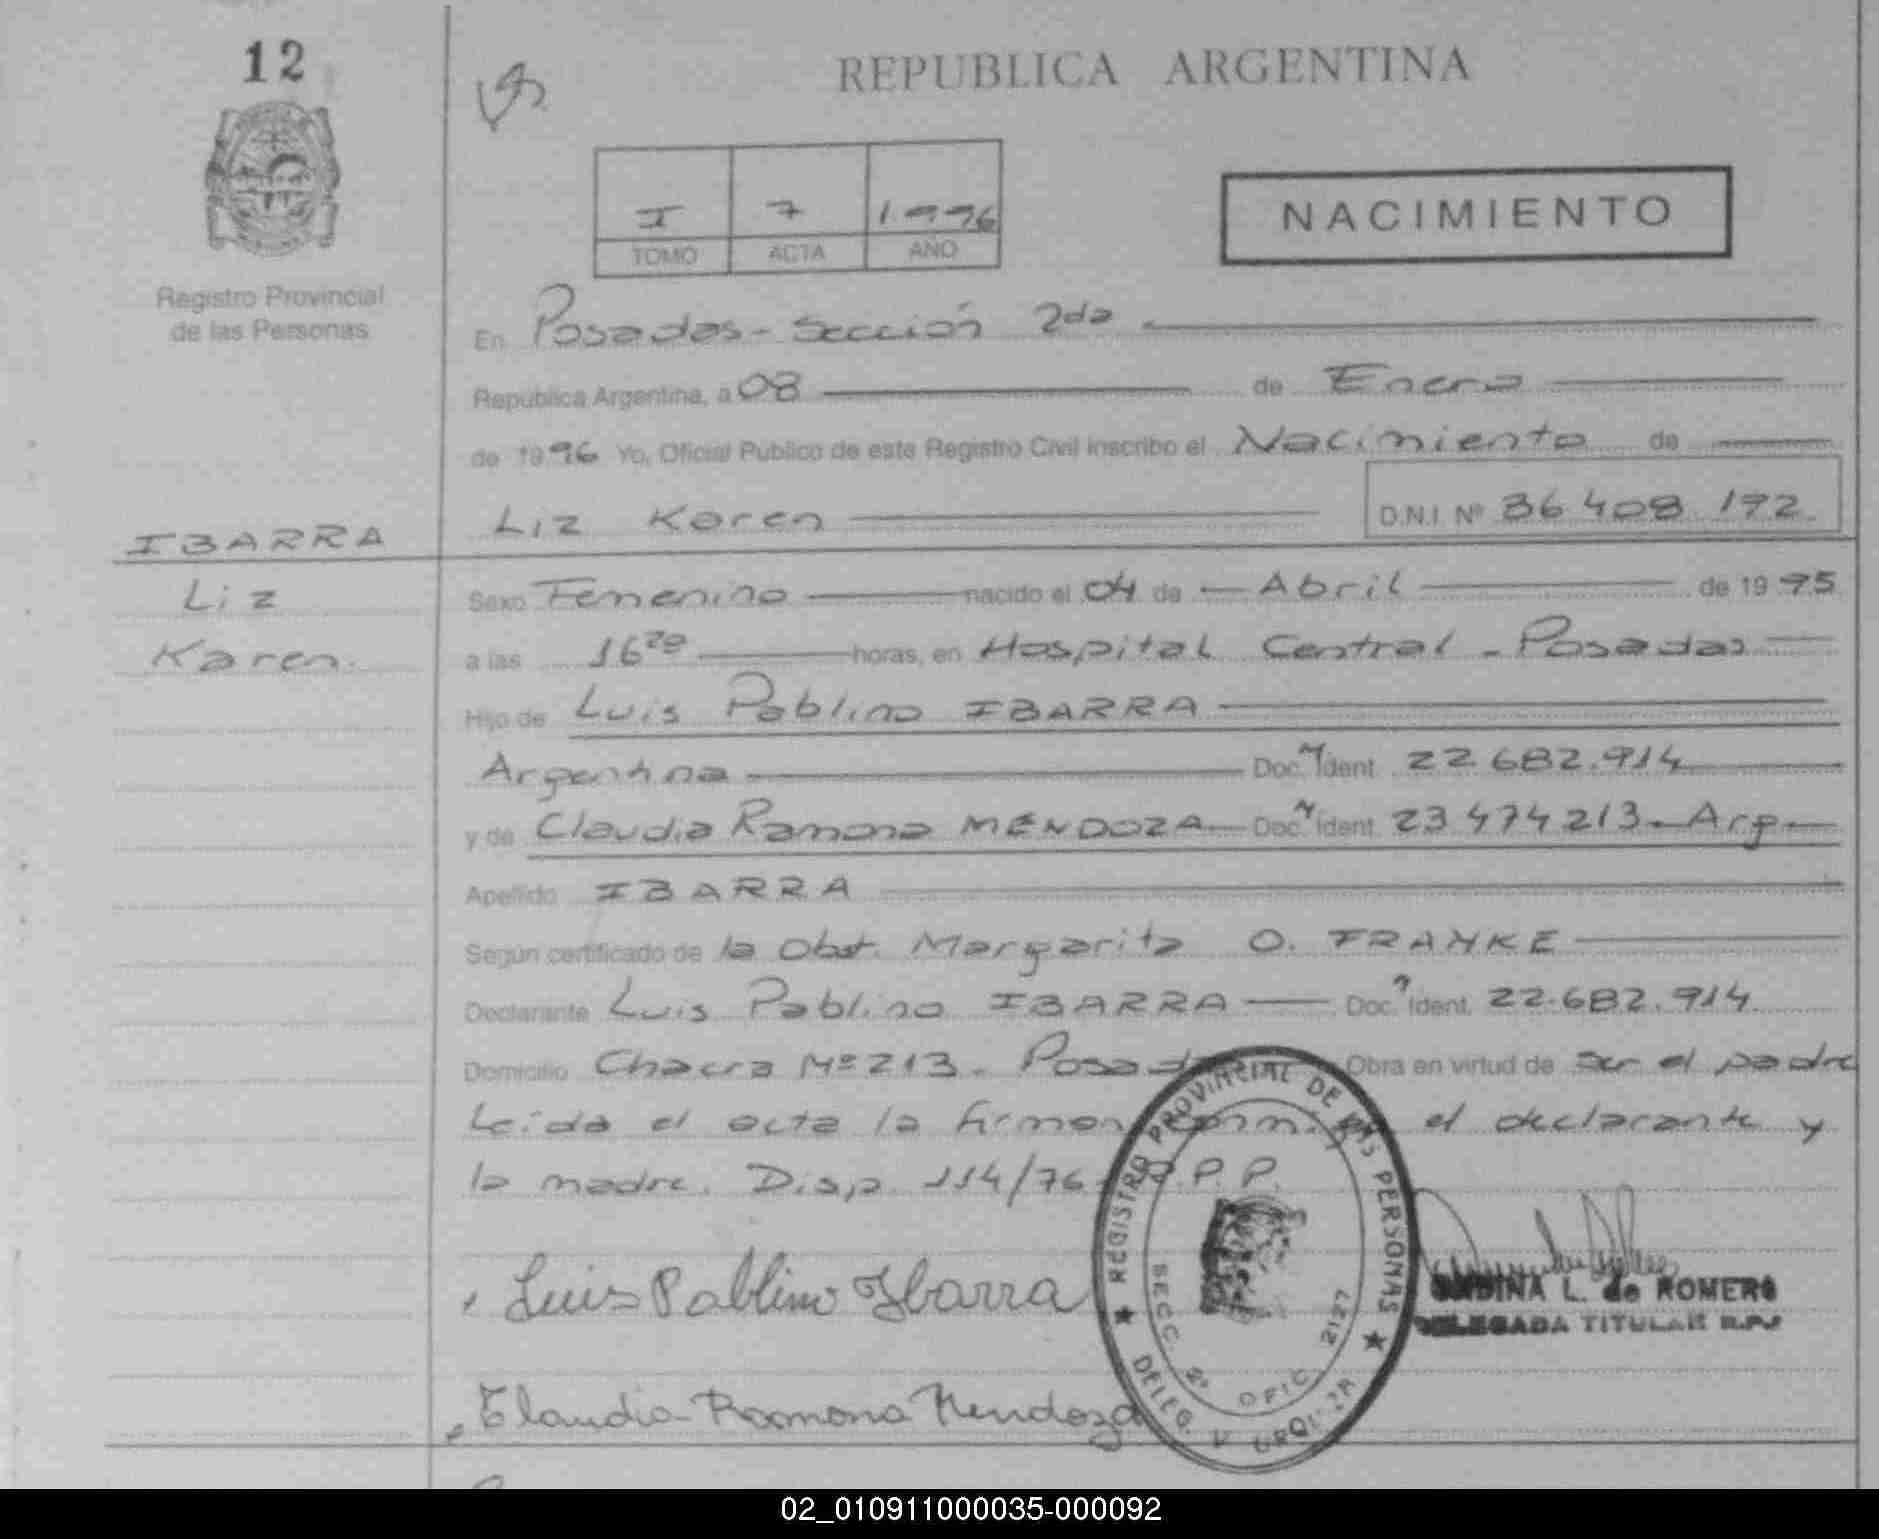 12
REPUBLICA ARGENTINA
I 7 1996
TOMO ACTA AÑO
NACIMIENTO
Registro Provincial
de las Personas
En Posadas - Sección 2da
República Argentina, a 08 de Enero
de 1996 Yo, Oficial Público de este Registro Civil inscribo el Nacimiento de
Liz Karen D.N.I. Nº 36 408 192
IBARRA
Liz
Karen.
Sexo Femenino nacido el 04 de Abril de 1995
a las 16²⁰ horas, en Hospital Central - Posadas
Hijo de Luis Pablino IBARRA
Argentina Doc. Ident. 22.682.914
y de Claudia Ramona MENDOZA Doc. Ident. 23 474 213 - Arg.
Apellido IBARRA
Según certificado de la Obst. Margarita O. FRANKE
Declarante Luis Pablino IBARRA Doc. Ident. 22.682.914
Domicilio Chacra Nº 213 - Posadas Obra en virtud de ser el padre
Leída el acta la firman conmigo el declarante y
la madre. Disp. 114/76 R.P.P.
Luis Pablino Ibarra
Claudia Ramona Mendoza
REGISTRO PROVINCIAL DE LAS PERSONAS
SECC. 2º OFIC 2127
DELEG. V URQUIZA
L. de ROMERO
DELEGADA TITULAR R.P.P.
02_010911000035-000092